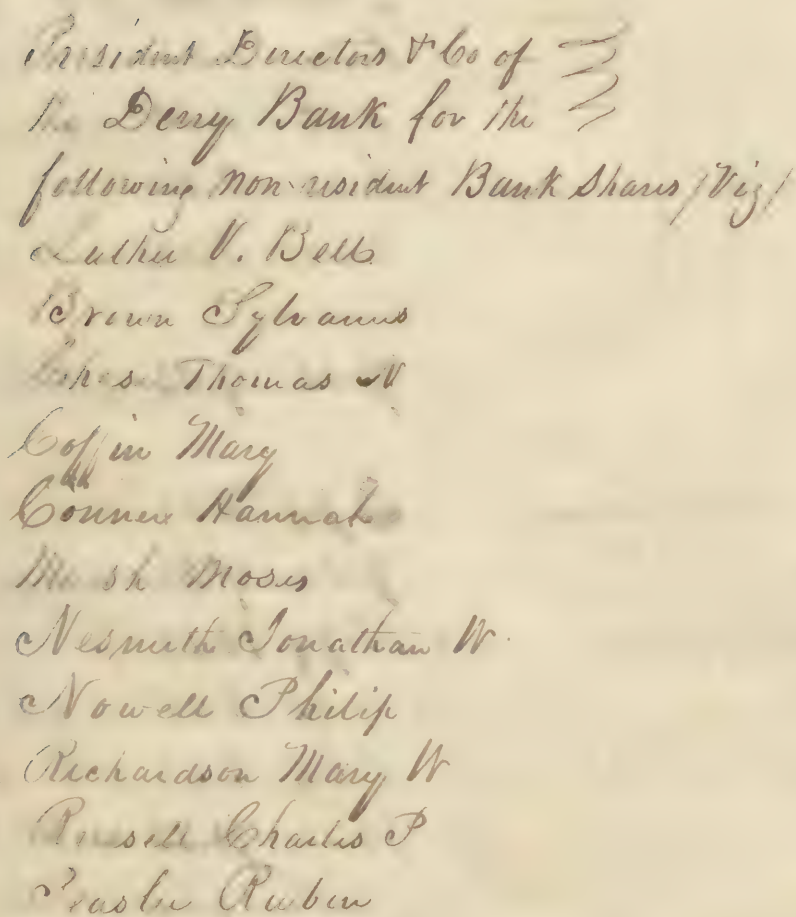 President Directors & Co of
the Derry Bank for the
following non-resident Bank Shares (Viz)
Luther V. Bell
Brown Sylvanus
Chase Thomas N
Coffin Mary
Conner Hannah
Marsh Moses
Nesmith Jonathan W.
Nowell Philip
Richardson Mary W
Russell Charles P
Peaslee Ruben